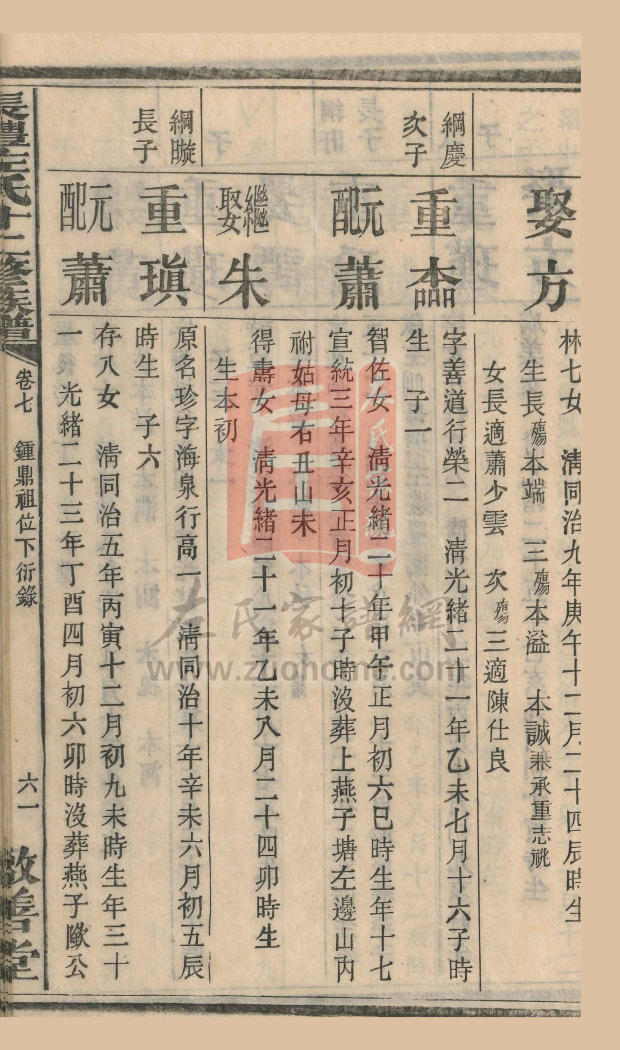 娶方
林七女 清同治九年庚午十二月二十四辰時生
生長殤本端 二 三殤本溢 本誠兼承重志祧
女長適蕭少雲 次殤三適陳仕良
綱慶
次子
重𣛕
字善道行榮二 清光緒二十一年乙未七月十六子時
生 子一
元配蕭
智佐女 清光緒二十年甲午正月初六巳時生年十七
宣統三年辛亥正月初十子時沒葬上燕子塘左邊山內
祔姑母右丑山未
繼娶朱
得壽女 清光緒二十一年乙未八月二十四卯時生
生本初
綱璇
長子
重瑱
原名珍字海泉行高一 清同治十年辛未六月初五辰
時生 子六
元配蕭
存八女 清同治五年丙寅十二月初九未時生年三十
一 光緒二十三年丁酉四月初六卯時沒葬燕子𡑞公
長醴左氏十二修族譜 卷七 鍾鼎祖位下衍錄 六一 敦善堂
左氏家譜網
www.zuohome.com